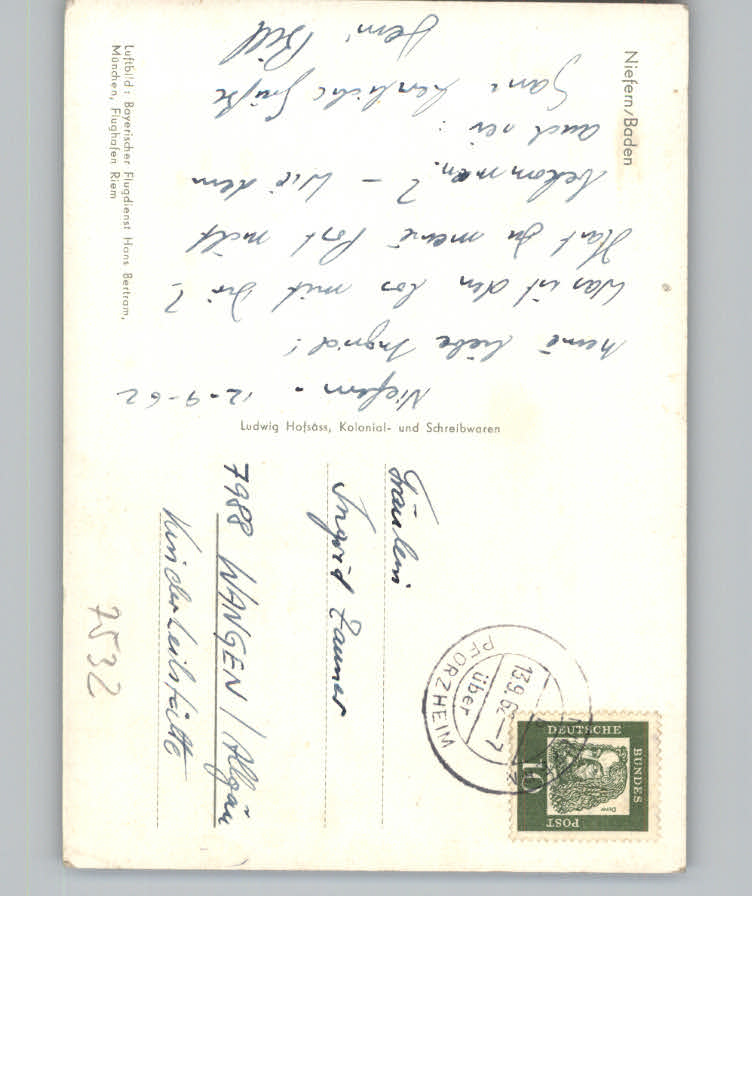 Niefern/Baden
Niefern - 12-9-62
meine liebe Ingrid!
Was ist den los mit Dir?
Hast Du meine Post nicht
bekommen? - Wie dem
auch sei:
Ganz herzliche Grüße
Dein Bill
Luftbild: Bayerischer Flugdienst Hans Bertram,
München, Flughafen Riem
Ludwig Hofsäss, Kolonial- und Schreibwaren
DEUTSCHE
BUNDES
POST
10
Dürer
13.9.62 - 7
über
PFORZHEIM
Fräulein
Ingrid Zauner
7988 WANGEN / Allgäu
Kinderheilstätte
7532